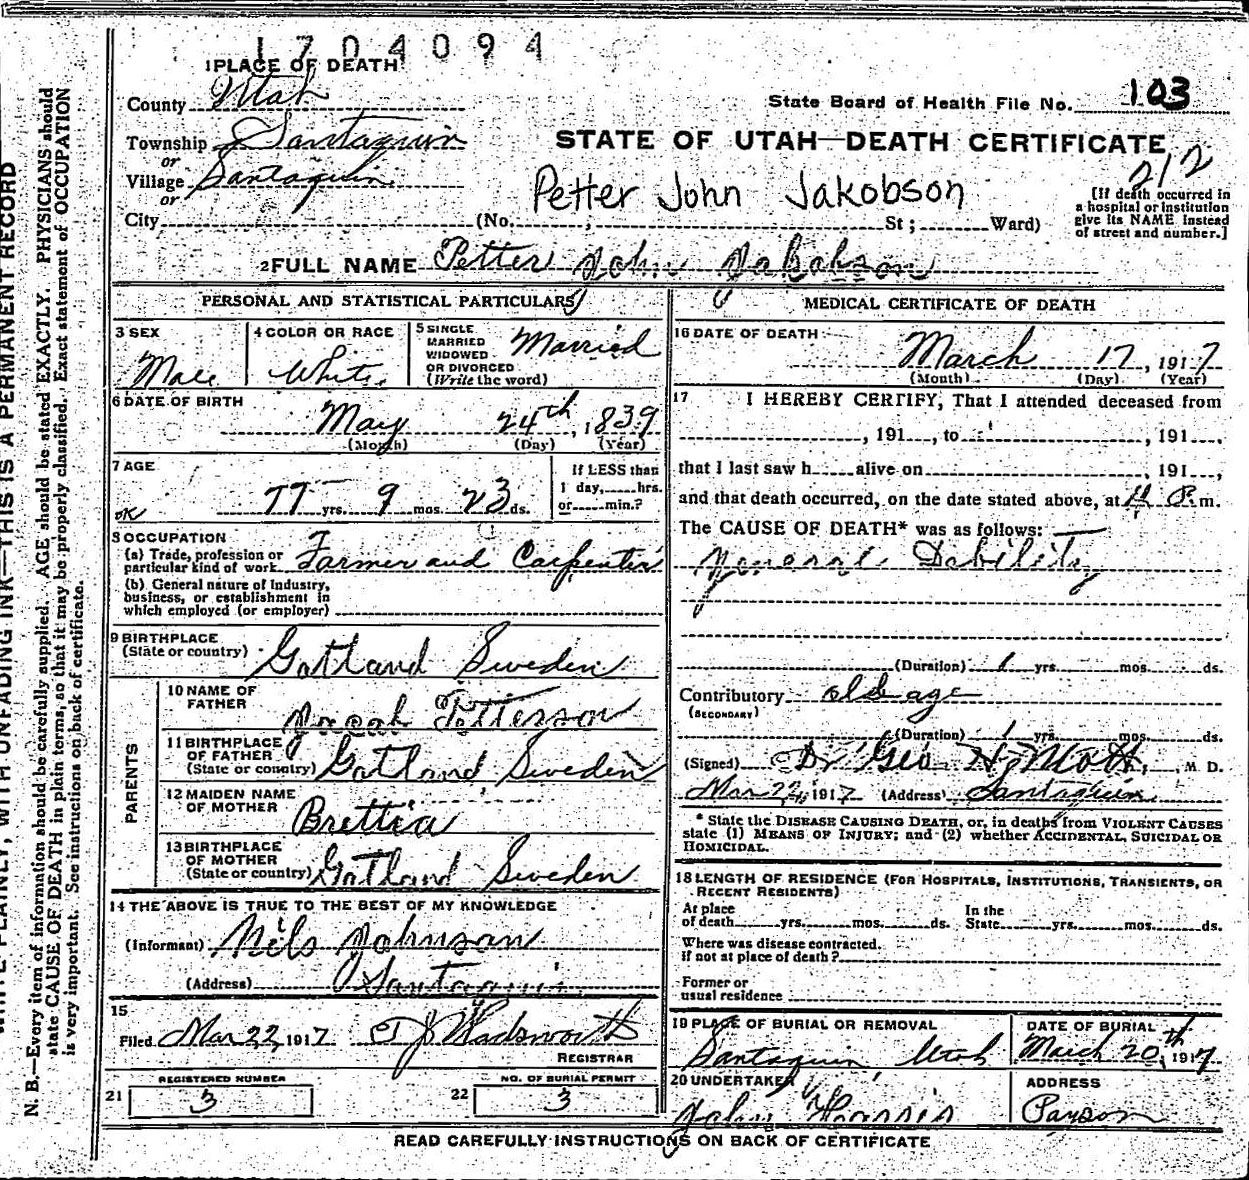 1704094
1 PLACE OF DEATH
County Utah
State Board of Health File No. 103
Township Santaquin
or
STATE OF UTAH—DEATH CERTIFICATE
212
Village Santaquin
or
Petter John Jakobson
City (No. , St ; Ward)
[If death occurred in
a hospital or institution
give its NAME instead
of street and number.]
2 FULL NAME Petter John Jakobson
PERSONAL AND STATISTICAL PARTICULARS
3 SEX
Male
4 COLOR OR RACE
White
5 SINGLE
MARRIED
WIDOWED
OR DIVORCED
(Write the word)
Married
6 DATE OF BIRTH
May 24th, 1839
(Month) (Day) (Year)
7 AGE
If LESS than
1 day, hrs.
or min.?
OK 77 yrs. 9 mos. 23 ds.
8 OCCUPATION
(a) Trade, profession or
particular kind of work Farmer and Carpenter
(b) General nature of Industry,
business, or establishment in
which employed (or employer)
9 BIRTHPLACE
(State or country) Gotland Sweden
PARENTS
10 NAME OF
FATHER Jocah Petterson
11 BIRTHPLACE
OF FATHER
(State or country) Gotland, Sweden
12 MAIDEN NAME
OF MOTHER Brettia
13 BIRTHPLACE
OF MOTHER
(State or country) Gotland Sweden
14 THE ABOVE IS TRUE TO THE BEST OF MY KNOWLEDGE
(Informant) Nils Johnson
(Address) Santaquin
15
Filed Mar 22, 1917 Wadsworth
REGISTRAR
REGISTERED NUMBER
21 3
NO. OF BURIAL PERMIT
22 3
MEDICAL CERTIFICATE OF DEATH
16 DATE OF DEATH
March 17, 1917
(Month) (Day) (Year)
17 I HEREBY CERTIFY, That I attended deceased from
, 191 , to , 191 ,
that I last saw h alive on , 191 ,
and that death occurred, on the date stated above, at P. m.
The CAUSE OF DEATH* was as follows:
General Debility
(Duration) 1 yrs. mos. ds.
Contributory old age
(SECONDARY)
(Duration) 1 yrs. mos. ds.
(Signed) Dr Geo H. Mott, M D.
Mar 22, 1917 (Address) Santaquin
* State the DISEASE CAUSING DEATH, or, in deaths from VIOLENT CAUSES
state (1) MEANS OF INJURY; and (2) whether ACCIDENTAL, SUICIDAL OR
HOMICIDAL.
18 LENGTH OF RESIDENCE (FOR HOSPITALS, INSTITUTIONS, TRANSIENTS, OR
RECENT RESIDENTS)
At place
of death yrs. mos. ds.
In the
State yrs. mos. ds.
Where was disease contracted.
if not at place of death?
Former or
usual residence
19 PLACE OF BURIAL OR REMOVAL
Santaquin, Utah
DATE OF BURIAL
March 20th, 1917
20 UNDERTAKER
John Harris
ADDRESS
Payson
READ CAREFULLY INSTRUCTIONS ON BACK OF CERTIFICATE
WRITE PLAINLY, WITH UNFADING INK—THIS IS A PERMANENT RECORD
N. B.—Every item of information should be carefully supplied. AGE should be stated EXACTLY. PHYSICIANS should
state CAUSE OF DEATH in plain terms, so that it may be properly classified. Exact statement of OCCUPATION
is very important. See instructions on back of certificate.